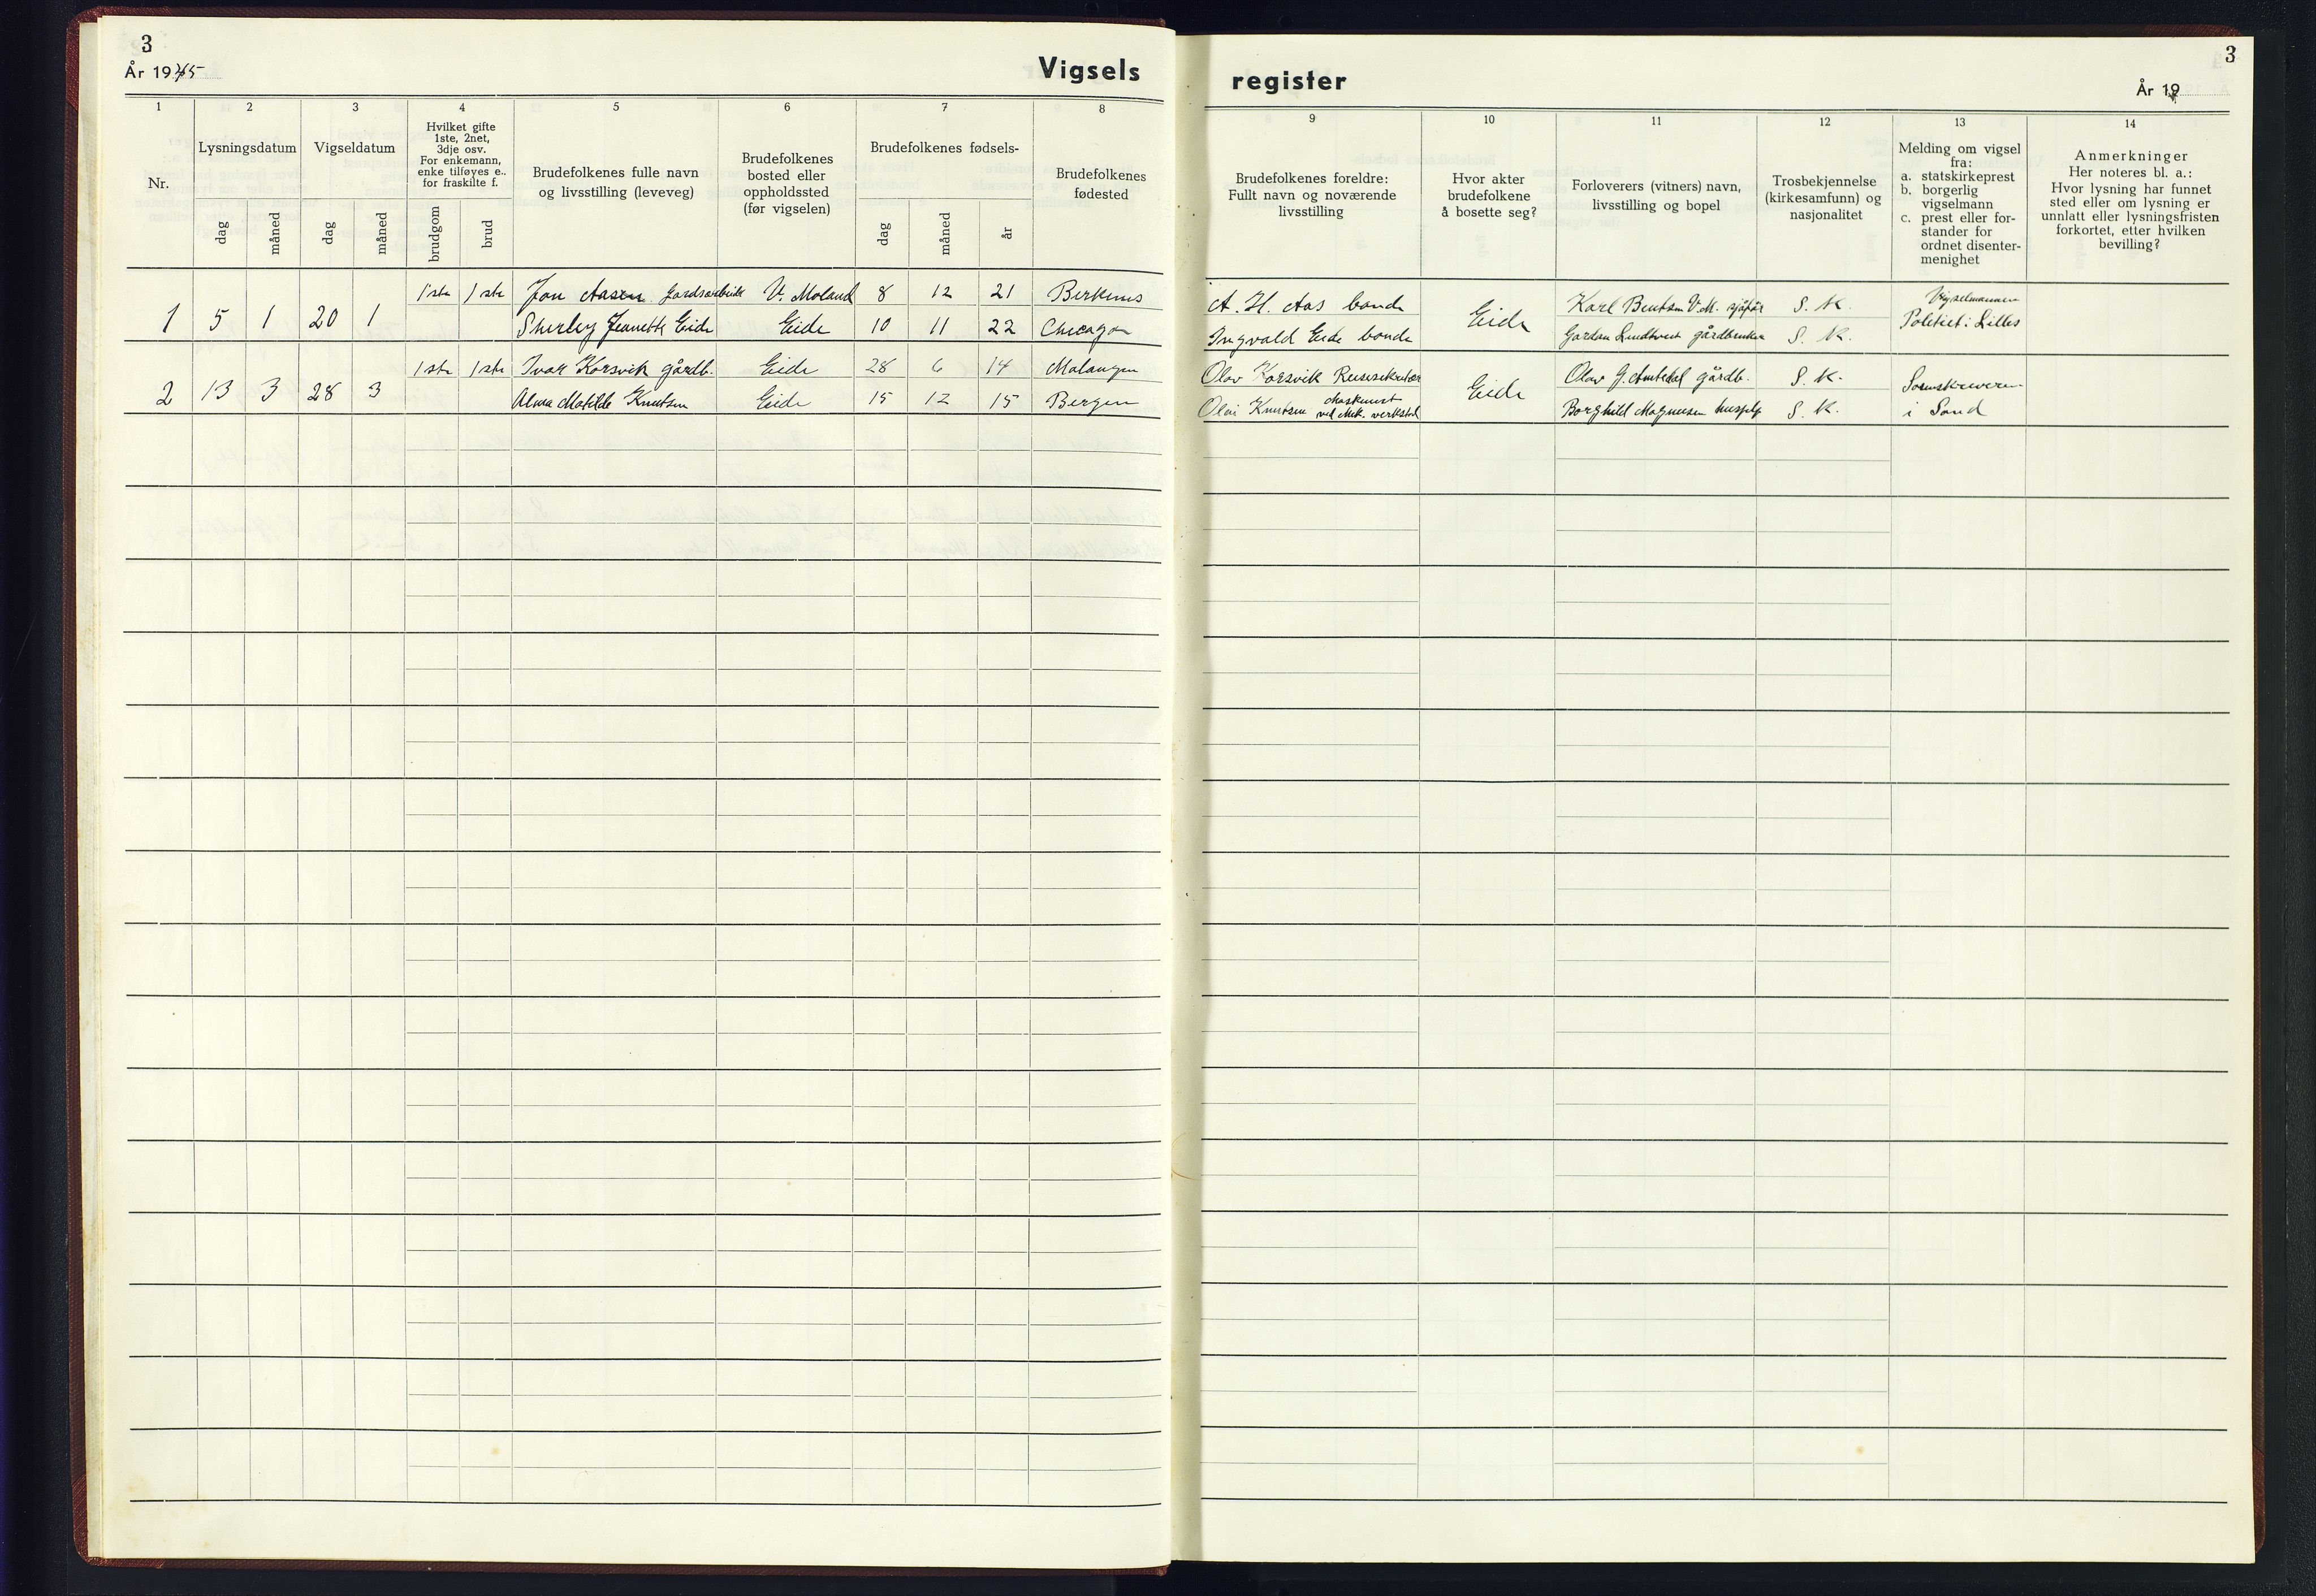 3
År 1945
Vigsels
register
3
År 19
1 2 3 4 5 6 7 8
9 10 11 12 13 14
Nr.
Lysningsdatum
dag måned
Vigseldatum
dag måned
Hvilket gifte
1ste, 2net,
3dje osv.
For enkemann,
enke tilføyes e..
for fraskilte f.
brudgom brud
Brudefolkenes fulle navn
og livsstilling (leveveg)
Brudefolkenes
bosted eller
oppholdssted
(før vigselen)
Brudefolkenes fødsels-
dag måned år
Brudefolkenes
fødested
Brudefolkenes foreldre:
Fullt navn og noværende
livsstilling
Hvor akter
brudefolkene
å bosette seg?
Forloverers (vitners) navn,
livsstilling og bopel
Trosbekjennelse
(kirkesamfunn) og
nasjonalitet
Melding om vigsel
fra:
a. statskirkeprest
b. borgerlig
vigselmann
c. prest eller for-
stander for
ordnet disenter-
menighet
Anmerkninger
Her noteres bl. a.:
Hvor lysning har funnet
sted eller om lysning er
unnlatt eller lysningsfristen
forkortet, etter hvilken
bevilling?
1 5 1 20 1
1ste 1ste Jon Aasen Gardsarbeide V. Moland 8 12 21 Berknes
Shirley Jeanette Eide Eide 10 11 22 Chicago
A. H. Aas bonde
Ingvald Eide bonde
Eide
Karl Bentsen V.M. sjåfør S. K.
Gordon Lindtveit gårdbruker S. K.
Vigselmannen
Politiet: Lilles
2 13 3 28 3
1ste 1ste Ivar Korsvik gårdb. Eide 28 6 14 Malangen
Alma Matilde Knutsen Eide 15 12 15 Bergen
Olav Korsvik Reisesekretær
Olai Knutsen Maskinist
ved Mek. verksted
Eide
Olav G. Amtedal gårdb. S. K.
Borghild Magnussen S. K.
Sorenskriveren
i Sand